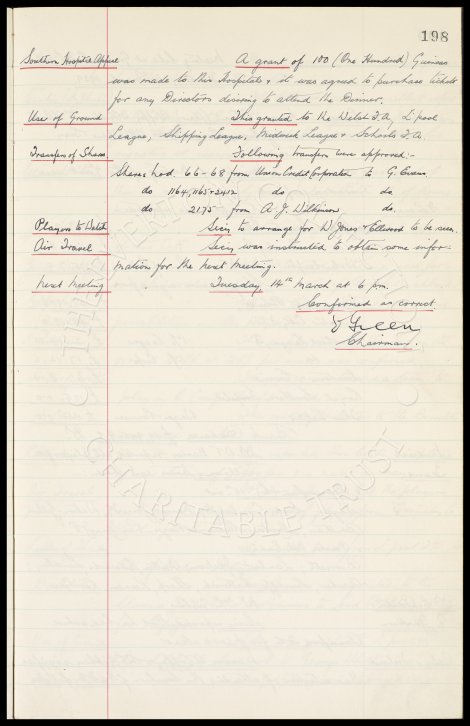 198
Southern Hospital Appeal A grant of 100 (One Hundred) Guineas
was made to this Hospital & it was agreed to purchase tickets
for any Directors desiring to attend the Dinner.
Use of Ground This granted to the Welsh F.A, L'pool
League, Shipping League, Midweek League & Schools F.A.
Transfers of Shares. Following transfers were approved:-
Shares Nod. 66-68 from Union Credit Corporation to G. Evans
do 1164, 1165 & 2412 do do
do 2175 from A. J. Wilkinson do.
Players to Watch Secy to arrange for W Jones & Ellwood to be seen.
Air Travel Secy was instructed to obtain some infor-
mation for the next meeting.
Next Meeting Tuesday, 14th March at 6 pm.
Confirmed as correct
Green
Chairman.
CHARITABLE TRUST